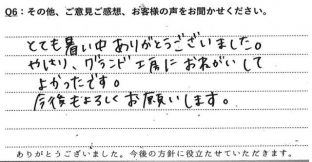 Q6：その他、ご意見ご感想、お客様の声をお聞かせください。
とても暑い中ありがとうございました。
やはり、グランド工房におねがいして
よかったです。
今後もよろしくお願いします。
ありがとうございました。今後の方針に役立たせていただきます。